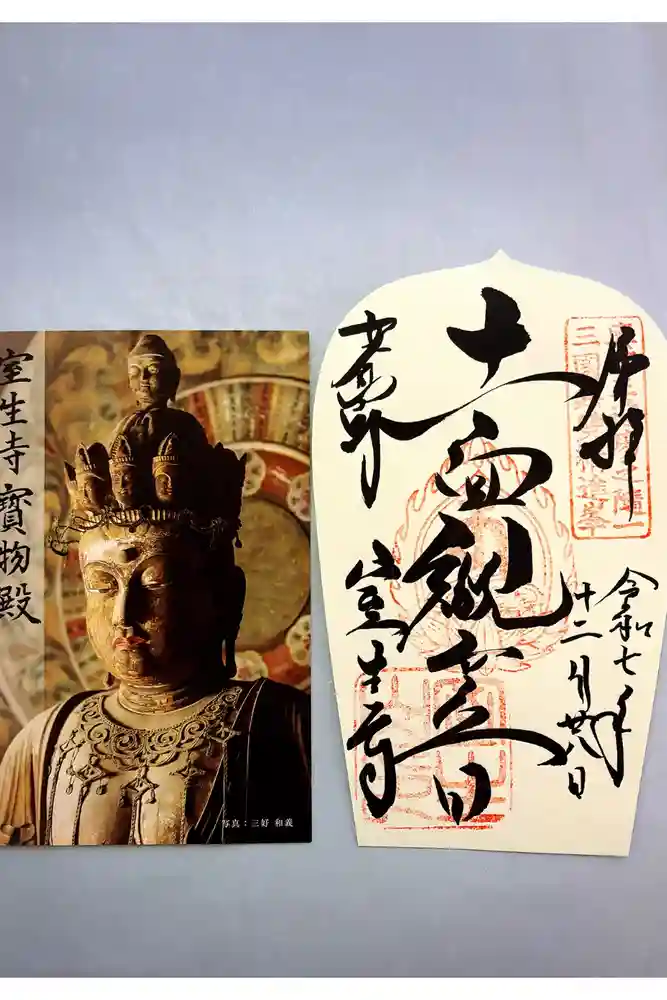 室生寺 寶物殿
写真：三好 和義
奉拝
令和七年
十二月廿八日
十一面観音
女人高野
室生寺